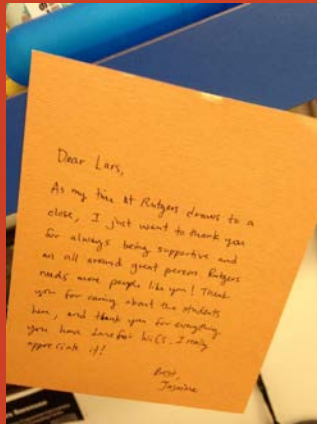 Dear Lars,
As my time at Rutgers draws to a
close, I just want to thank you
for always being supportive and
an all around great person. Rutgers
needs more people like you! Thank
you for caring about the students
here, and thank you for everything
you have done for
I really
appreciate it!
Best,
Jasmine